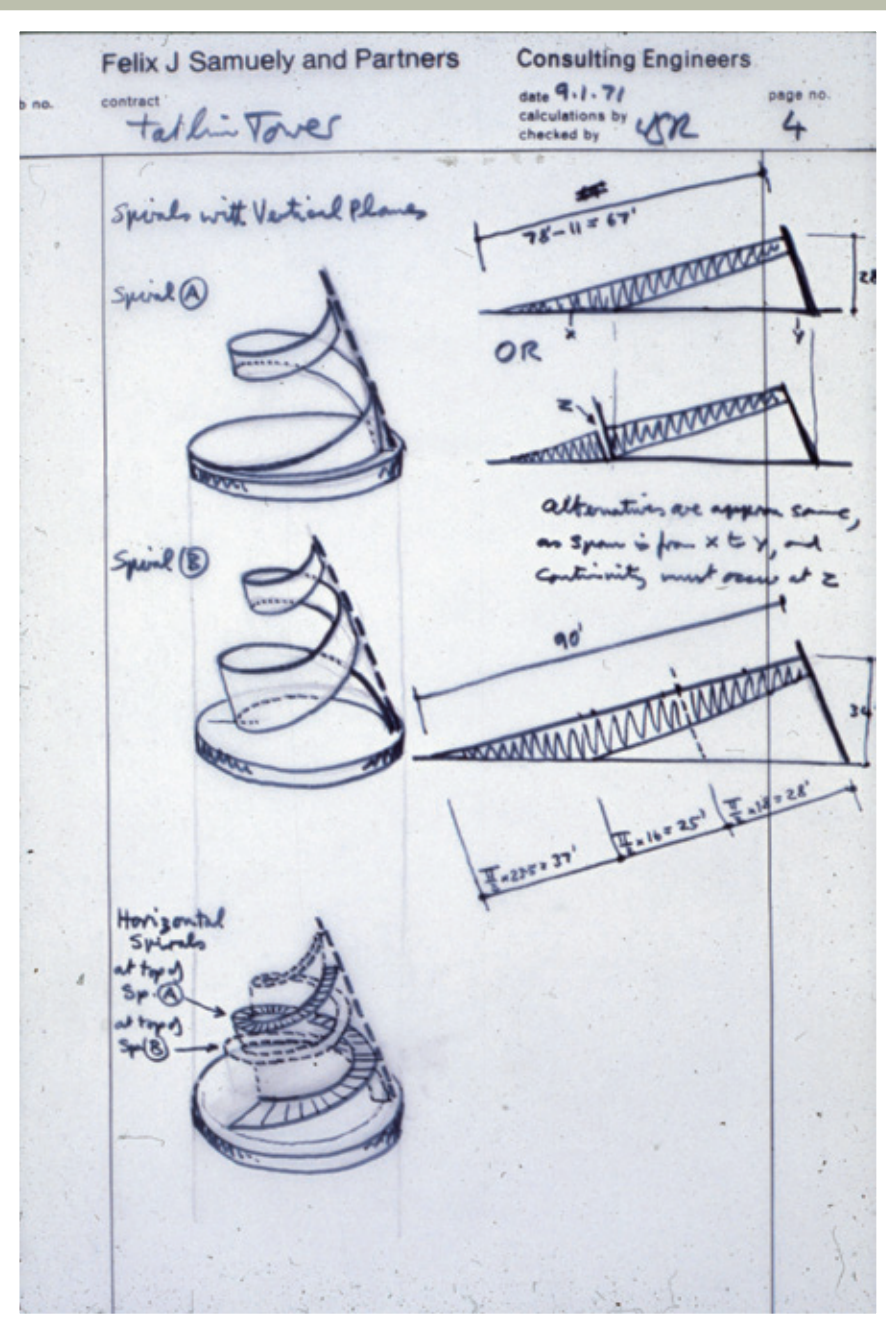 Felix J Samuely and Partners
Consulting Engineers
b no.
contract
Tatlin Tower
date 9.1.71
calculations by
checked by
page no.
4
Spirals with Vertical Planes
78-11 = 67'
Spiral A
28
x
y
OR
z
Alternatives are approx same,
as span is from x to y, and
Continuity must occur at z
Spiral B
90'
34
π/2 × 23.5 = 37'
π/2 × 16 = 25'
π/2 × 18 = 28'
Horizontal
Spirals
at top of
Sp. A
at top of
Sp. B